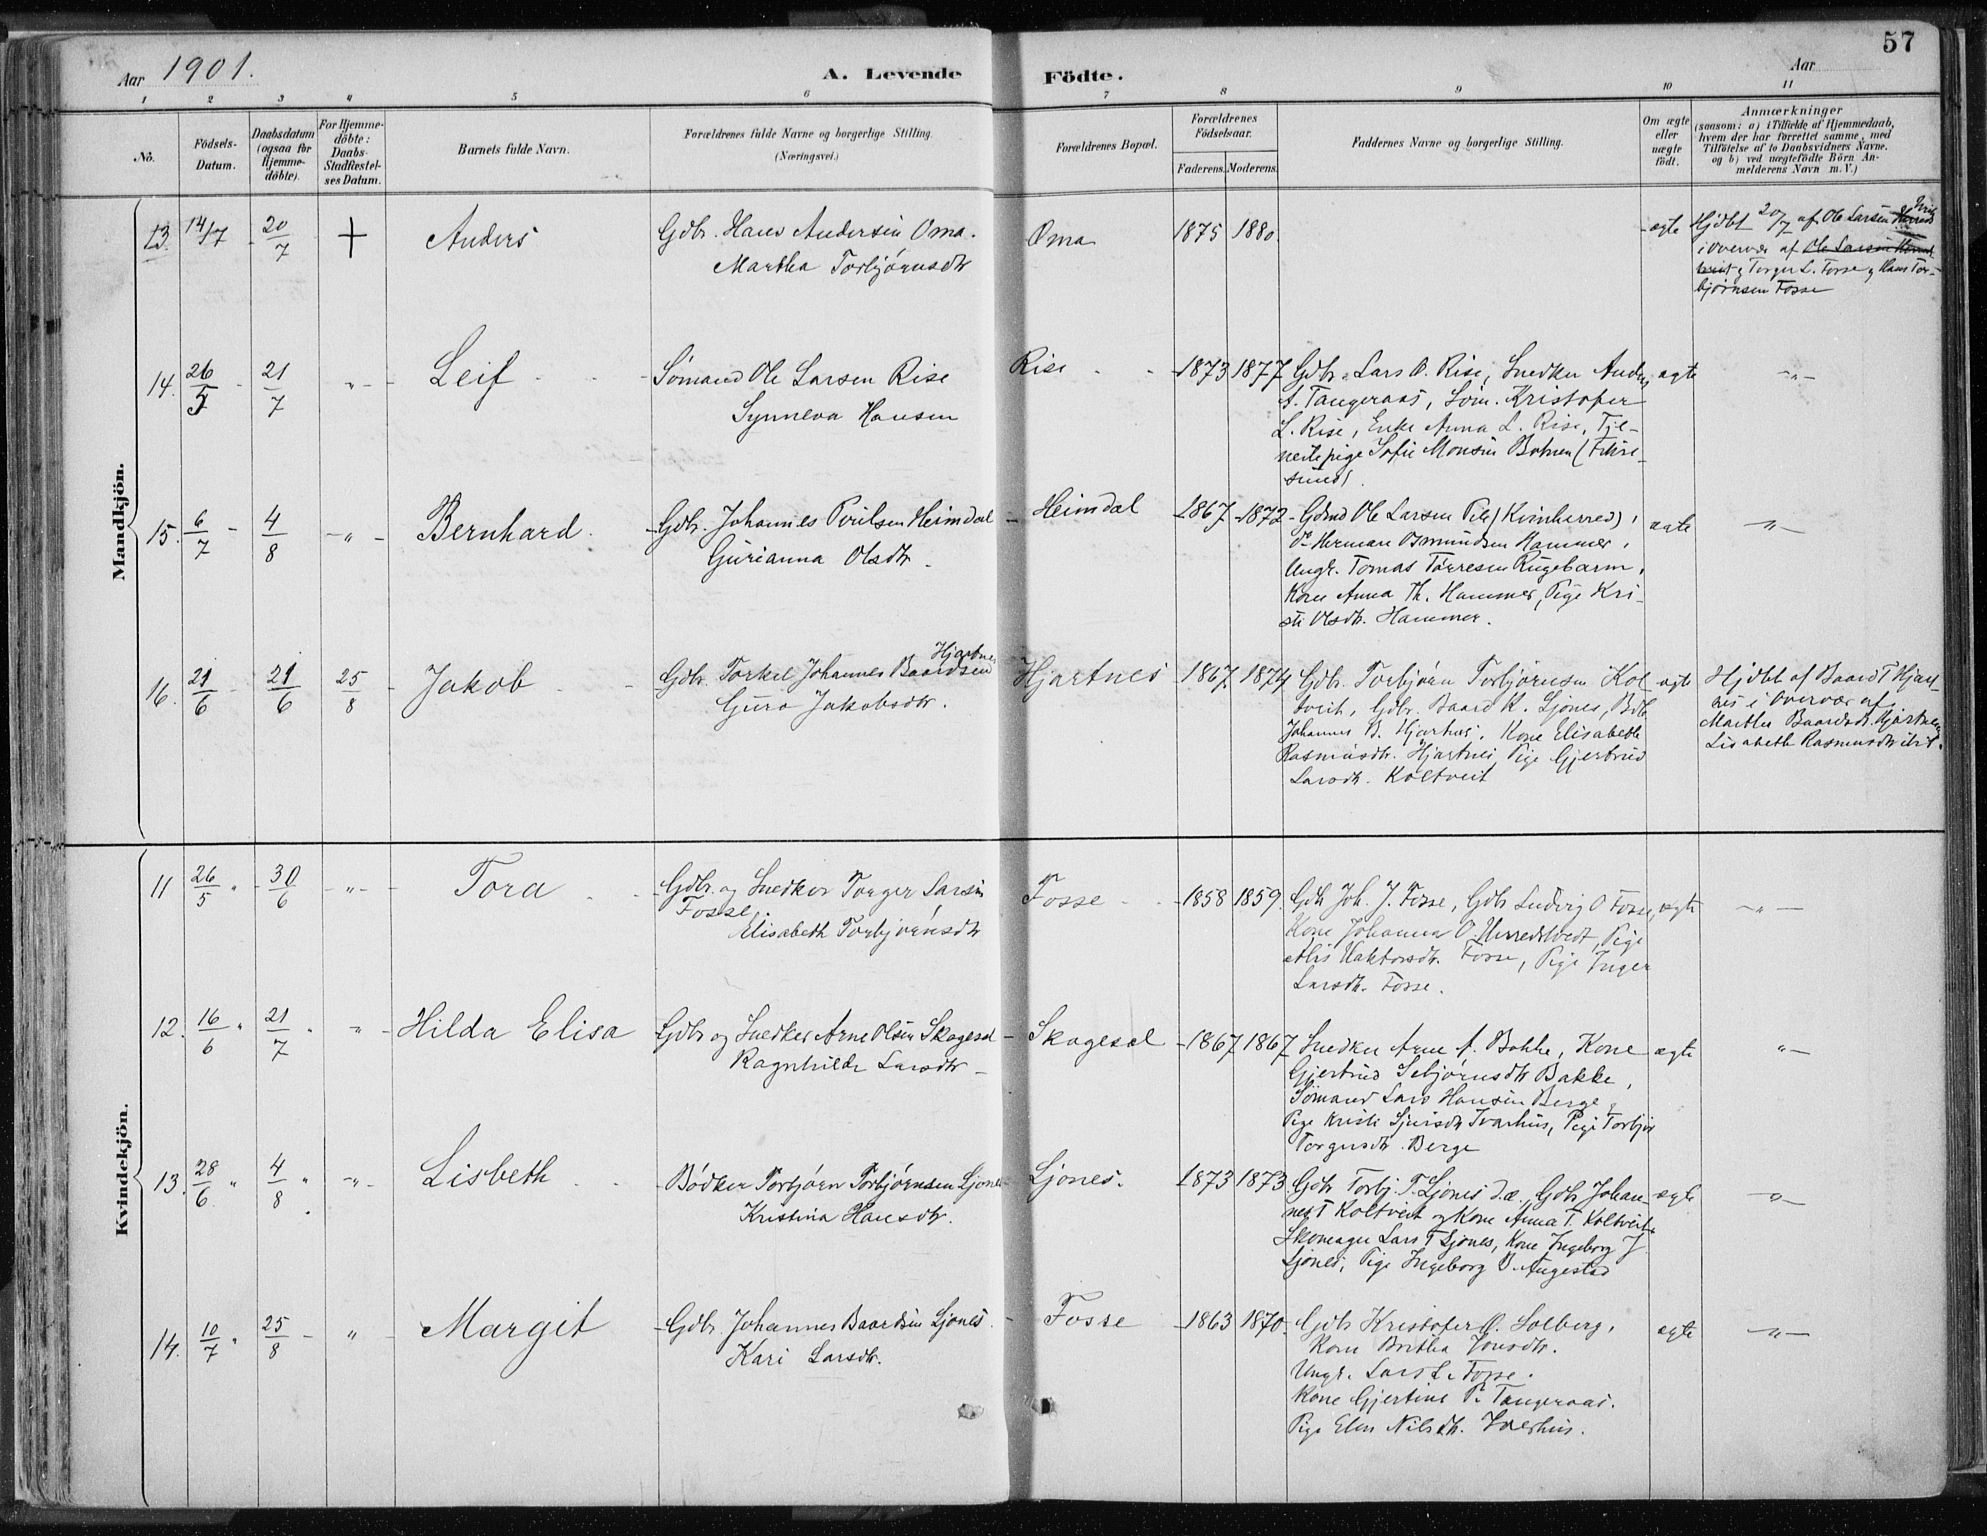 57
Aar 1901.
A. Levende Födte.
Aar
1 2 3 4 5 6 7 8 9 10 11
No.
Födsels-Datum.
Daabsdatum (ogsaa for Hjemme-döbte).
For Hjemme-döbte: Daabs-Stadfæstel-ses Datum.
Barnets fulde Navn.
Forældrenes fulde Navne og borgerlige Stilling. (Næringsvei.)
Forældrenes Bopæl.
Forældrenes Födselsaar.
Faderens. Moderens.
Faddernes Navne og borgerlige Stilling.
Om ægte eller uægte födt.
Anmærkninger
(saasom: a) i Tilfælde af Hjemmedaab,
hvem der har forrettet samme, med
Tilföielse af to Daabsvidners Navne.
og b) ved uægtefödte Börn An-
melderens Navn m. V.)
Mandkjön.
13. 14/7 20/7 + Anders Gdbr. Hans Andersen Oma. Oma 1875 1880. ægte Hjdbt 20/7 af Ole Larsen
Martha Torbjørnsdtr
i overvær af Ole Larsen
og Torger L. Fosse og Hans Tor-
bjørnsen Fosse
14. 26/5 21/7 " Leif Sömand Ole Larsen Rise Rise 1873 1877 Gdbr. Lars O. Rise, Snedker Anders ægte "
Synneva Hansen
A. Tangeraas, Söm. Kristofer
L. Rise, Enke Anna L. Rise, Tje-
nestepige Sofie Monsen Botnen (Fikse-
sund).
15. 6/7 4/8 " Bernhard Gdbr. Johannes Heimdal Heimdal 1867 1872 Gdmd Ole Larsen (Kvinherred), ægte "
Gurianna Olsdtr.
do Herman Osmundsen Hammer,
Ungk. Tomas Tørresen Rugebarm,
Kone Anna Th. Hammer, Pige Kri-
sti Olsdtr. Hammer.
16. 21/6 21/6 25/8 Jakob Gdbr. Torkel Johannes Baardsen Hjartnes Hjartnes 1867 1874 Gdbr. Torbjørn Torbjørnsen Kol- ægte Hjdbt af Baard T Hjart-
Guro Jakobsdtr.
tveit, Gdbr. Baard K. Ljones,
nes i Overvær af
Johannes B. Hjartnes, Kone Elisabeth
Martha Baardsdtr. Hjartnes
Rasmusdtr. Hjartnes, Pige Gjertrud
Lisabeth Rasmusdtr ibid.
Larsdtr. Koltveit
Kvindekjön.
11 26/5 " 30/6 " Tora Gdbr og Snedker Torger Larsen Fosse 1858 1859. Gdbr Joh. J. Fosse, Gdbr Ludvig O Fosse, ægte "
Fosse,
Elisabeth Torbjörnsdtr
Kone Johanna O. Herredstvedt, Pige
Haktorsdtr. Fosse, Pige Inger
Larsdtr. Fosse.
12. 16/6 " 21/7 " " Hilda Elisa Gdbr og Snedker Arne Olsen Skogesal Skogesal 1867 1867 Snedker Arne A. Bakke, Kone ægte "
Ragnhilde Larsdtr
Gjertrud Sebjørnsdtr Bakke,
Sömand Lars Hansen Berge,
Pige Kristi Sjursdtr Ivarhus, Pige Torbjør
Torgersdtr. Berge
13. 28/6 " 4/8 " " Lisbeth Bödker Torbjørn Torbjørnsen Ljones Ljones. 1873 1873 Gdbr Torbj. T. Ljones d.æ., Gdbr Johan- ægte "
Kristina Hansdtr.
nes T Koltveit og Kone Anna T. Koltveit
Skomager Lars T Ljones, Kone Ingeborg J
Ljones, Pige Ingeborg O. Augestad
14. 10/7 " 25/8 " Margit Gdbr Johannes Baardsen Ljones. Fosse 1863 1870 Gdbr Kristofer O. Solberg, ægte "
Kari Larsdtr.
Kone Britha Jonsdtr.
Ungk. Lars L. Fosse.
Kone Gjertine P. Tangeraas.
Pige Elen Nilsdtr.